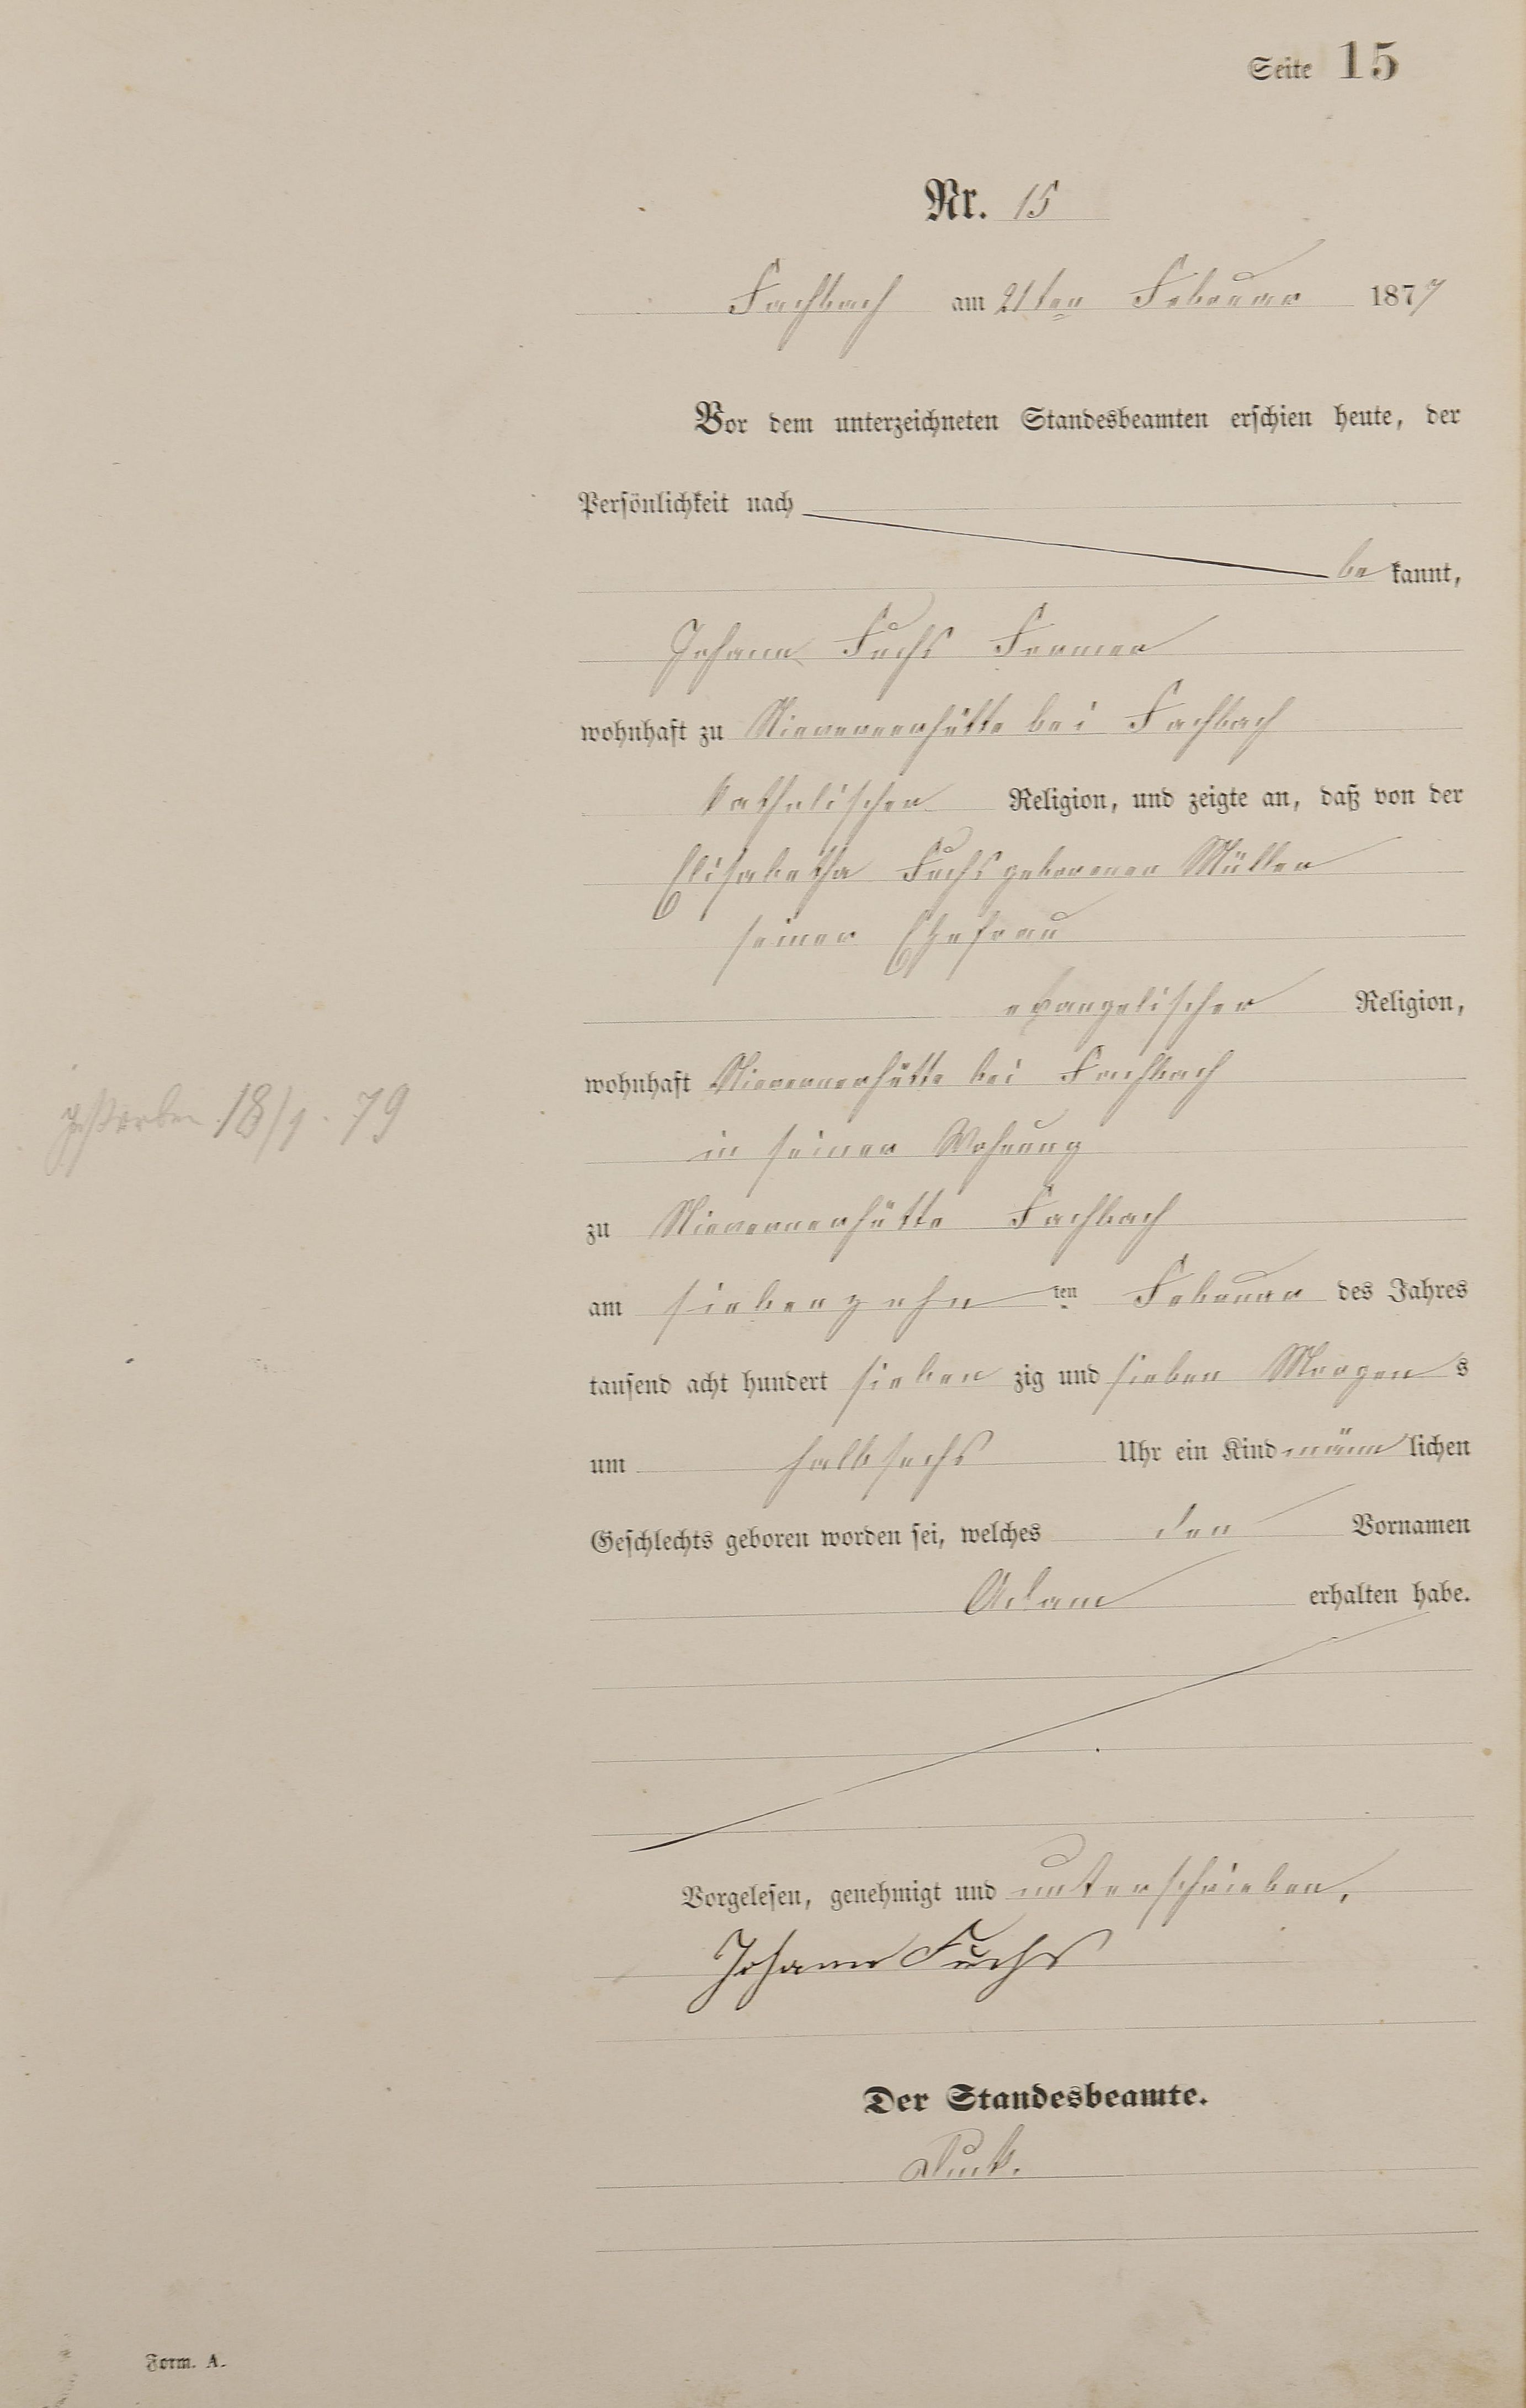 Seite 15
Nr. 15
Fachbach am 21ten Februar 1877
Vor dem unterzeichneten Standesbeamten erschien heute, der
Persönlichkeit nach
be kannt,
Johann Fuchs Former
wohnhaft zu Nievernerhütte bei Fachbach
katholischer Religion, und zeigte an, daß von der
Elisabetha Fuchs geborenen Müller
seiner Ehefrau
evangelischer Religion,
wohnhaft Nievernerhütte bei Fachbach
gestorben 18/1. 79
in seiner Wohnung
zu Nievernerhütte Fachbach
am siebenzehn ten Februar des Jahres
tausend acht hundert sieben zig und sieben Morgen s
um halb sechs Uhr ein Kind männ lichen
Geschlechts geboren worden sei, welches den Vornamen
Adam erhalten habe.
Vorgelesen, genehmigt und unterschrieben.
Johann Fuchs
Der Standesbeamte.
Form. A.